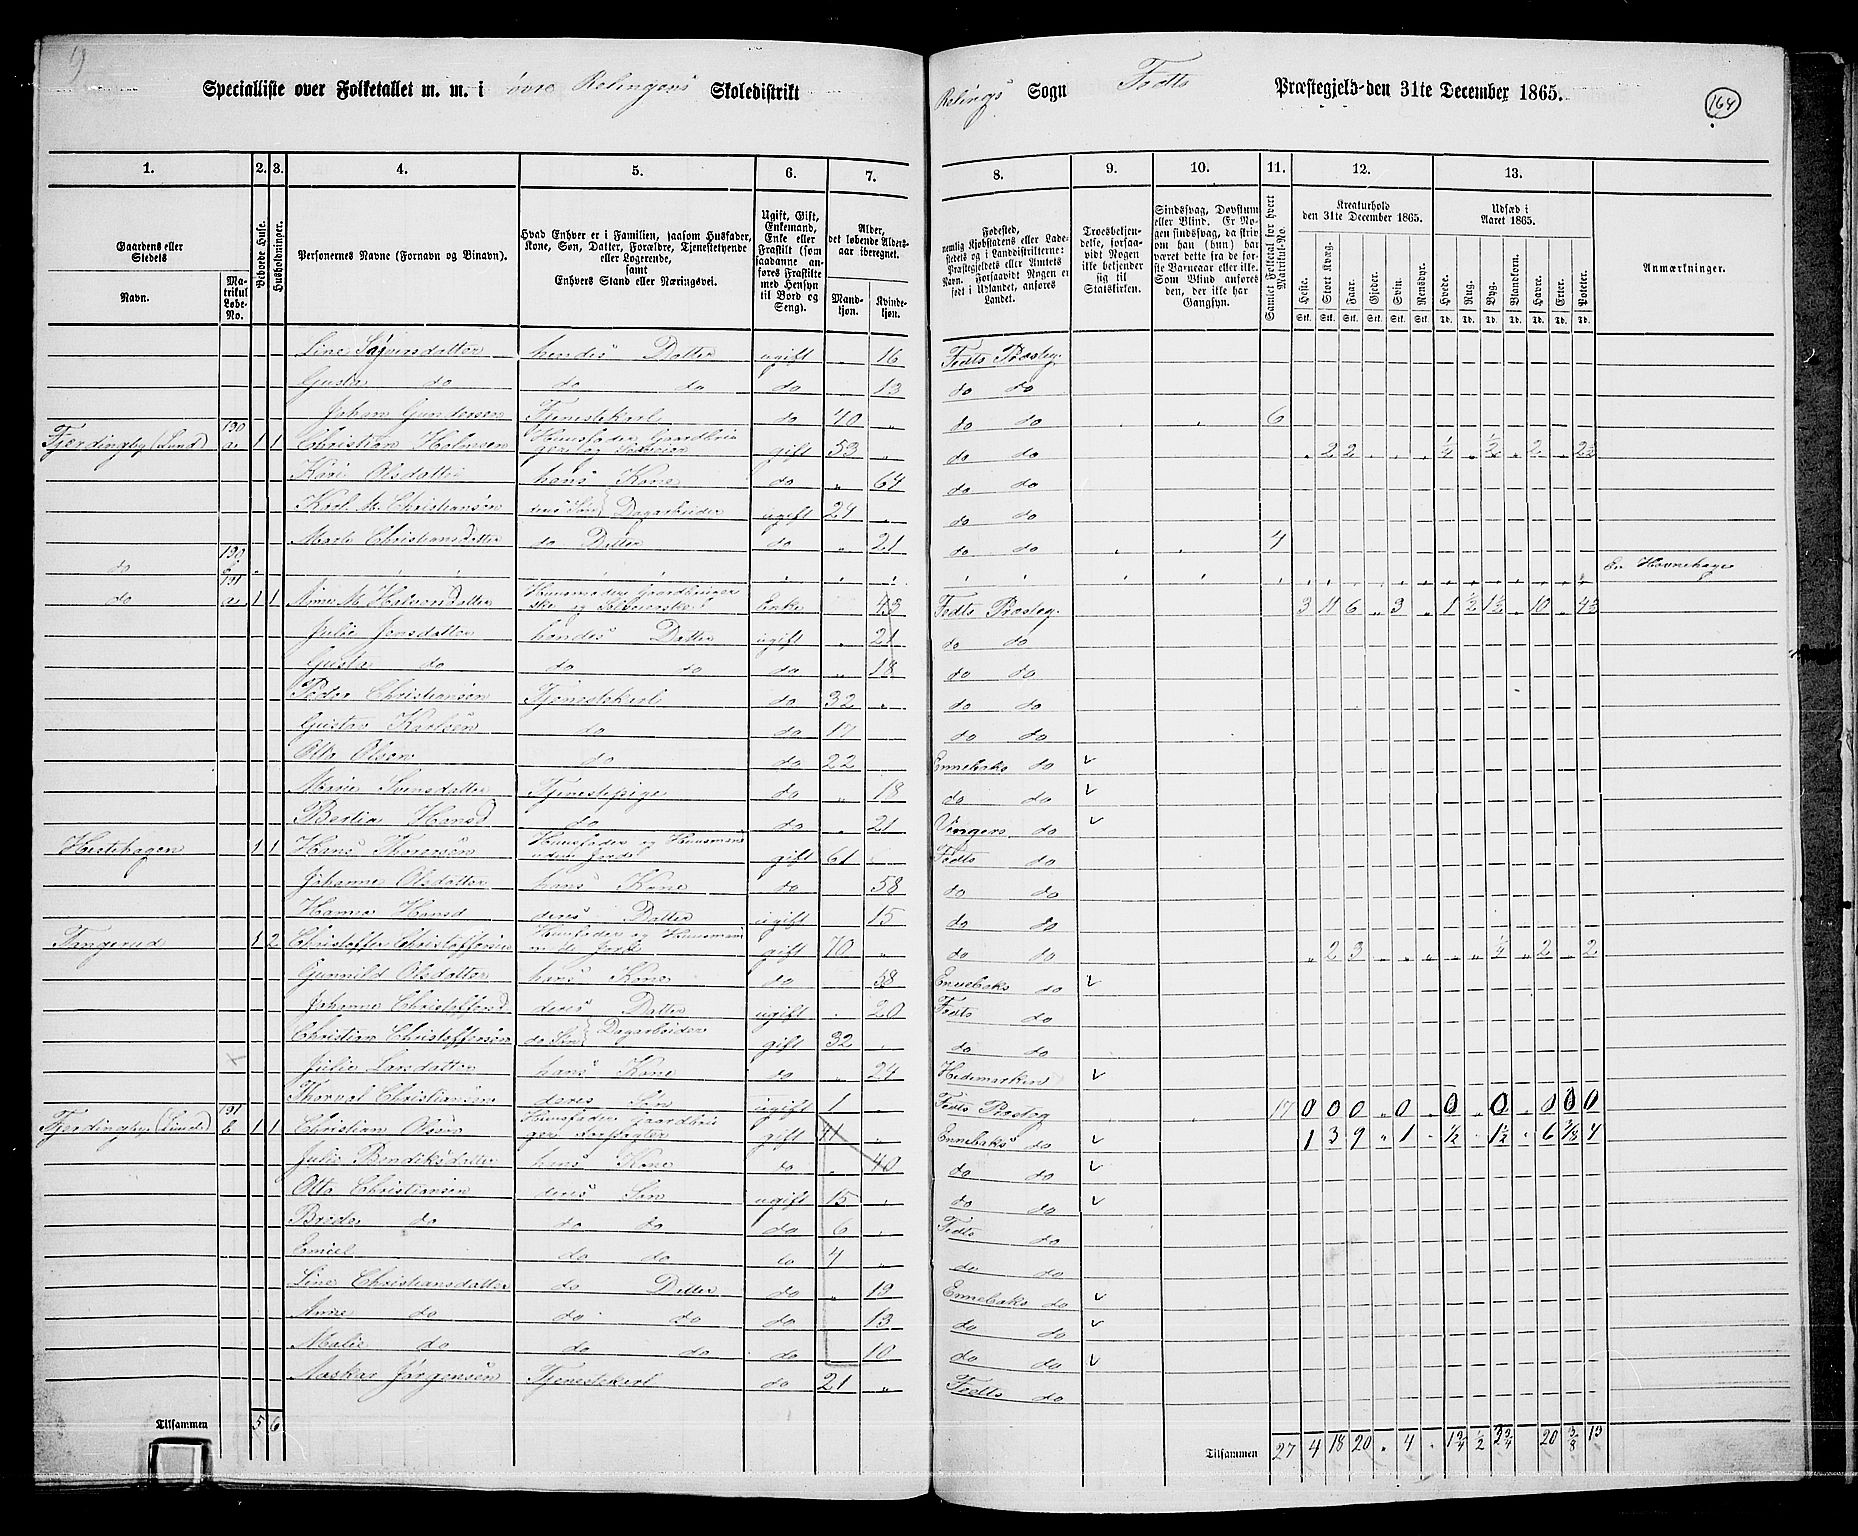 9
Specialliste over Folketallet m. m. i øvre Relingens Skoledistrikt
Relings Sogn Fedts Præstegjeld den 31te December 1865.
164
1. 2. 3. 4. 5. 6. 7. 8. 9. 10. 11. 12. 13.
Gaardens eller Stedets
Navn.
Matrikul Løbe-No.
Beboede Huse.
Husholdninger.
Personernes Navne (Fornavn og Binavn).
Hvad Enhver er i Familien, saasom Husfader, Kone, Søn, Datter, Forældre, Tjenestetyende eller Logerende, samt Enhvers Stand eller Næringsvei.
Ugift, Gift, Enkemand, Enke eller Fraskilt (saadanne anføres Fraskilte med Hensyn til Bord og Seng).
Alder, det løbende Aldersaar iberegnet.
Mandkjøn.
Kvindekjøn.
Fødested, nemlig Kjøbstadens eller Ladestedets og i Landdistrikterne: Præstegjeldets eller Amtets Navn. Forsaavidt Nogen er født i Udlandet, anføres Landet.
Troesbekjendelse, forsaavidt Nogen ikke bekjender sig til Statskirken.
Sindssvag, Døvstum eller Blind. Er Nogen sindssvag, da skriv om han (hun) har været dette fra de første Barneaar eller ikke. Som Blind anføres den, der ikke har Gangsyn.
Samlet Folketal for hvert Matrikul-No.
Kreaturhold den 31te December 1865.
Heste. Stort Kvæg. Faar. Gjeder. Svin. Rensdyr.
Udsæd i Aaret 1865.
Hvede. Rug. Byg. Blandkorn. Havre. Erter. Poteter.
Stk. Stk. Stk. Stk. Stk. Stk. Td. Td. Td. Td. Td. Td. Td.
Anmærkninger.
Line hendes Datter ugift " 16 Fedts Præsteg.
Gusta do do do do " 13 do do
Johan Gundersen Tjenestekarl do 40 " do do 6
Fjerdingby (Lund) 190 a 1 1 Christian Halvorsen Huusfader Gaardbruger og Selveier gift 53 " do do " 2 2 " " " ¼ " ½ " 2 " 2½
Kari Olsdatter hans Kone do " 64 do do
Karl M. Christiansen deres Søn Dagarbeider ugift 24 " do do
Marte Christiansdatter do Datter do " 21 do do 4
do 190 b En Havnehage
do 191 a 1 1 Anne M. Halvorsdatter Huusmoder Gaardbrugerske og Selveierske Enke " 43 Fedts Præsteg. 3 11 6 " 3 " 1 ½ 1½ " 10 " 4½
Julie Jensdatter hendes Datter ugift " 21 do do
Gusta do do do do " 18 do do
Peder Christiansen Tjenestekarl do 32 " do do
Gustav Karlsen do do 17 do do
Otto Olsen do do 22 Ennebaks do
Marie Svensdatter Tjenestepige do " 18 do do
Berlia Hansd do do " 21 Vingers do
Hestehagen 1 1 Hans Thoresen Huusfader og Huusmand uden Jord gift 61 Fedts do
Johanne Olsdatter hans Kone do 58 do do
Hanna Hansd deres Datter ugift 15 do do
Tangerud 1 2 Christoffer Christoffersen Huusfader og Huusmand med Jord gift 70 " do do " 2 3 " " " " " ¼ " 2 " 2
Gunnild Olsdatter hans Kone do 58 Ennebaks do
Johanne Christoffersd deres Datter ugift " 20 Fedts do
Christian Christoffersen do Søn Dagarbeider gift 32 " do do
Julie Larsdatter hans Kone do " 24 Hedemarken
Thorval Christiansen deres Søn ugift 1 " Fedts Præsteg 17 0 0 0 " 0 " 0 0 0 0 0
Fjerdingby (Lund) 191 b 1 1 Christian Olsen Huusfader Gaardbruger gift 41 " Ennebaks do 1 3 9 " 1 " ½ " 1½ " 6 ⅜ 4
Julie Bendiksdatter hans Kone do " 40 do do
Otto Christiansen deres Søn ugift 15 " do do
Brede do do do do 6 " Fedts do
Emiel do do do 4 " do do
Line Christiansdatter do Datter do " 19 Ennebaks do
Anne do do do do " 13 do do
Malie do do do do 10 do do
Aaskar Jørgensen Tjenestekarl do 21 " Fedts do
Tilsammen 5 6
Tilsammen 27 4 18 20 " 4 " 1¾ ½ 3¾ 20 ⅜ 13